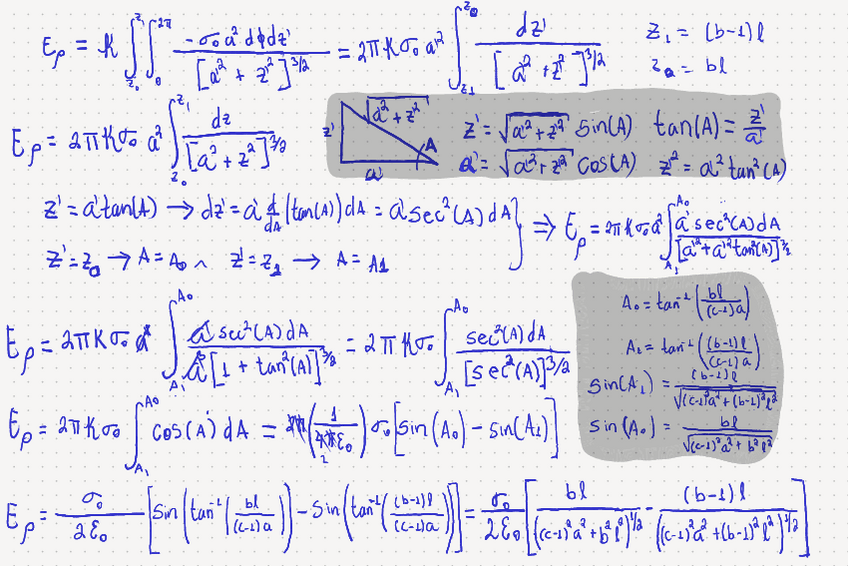 E_ρ = K ∫_{z_0}^{z_1} ∫_0^{2π} -σ_0 a'^2 dφdz' / [a'^2 + z'^2]^{3/2} = 2πKσ_0 a'^2 ∫_{z_1}^{z_0} dz' / [a'^2 + z'^2]^{3/2} z_1 = (b-1)l
z_0 = bl
E_ρ = 2πKσ_0 a'^2 ∫_{z_0}^{z_1} dz / [a'^2 + z'^2]^{3/2} z' √(a'^2 + z'^2) A a' z' = √(a'^2 + z'^2) sin(A) tan(A) = z'/a'
a' = √(a'^2 + z'^2) cos(A) z'^2 = a'^2 tan^2(A)
z' = a' tan(A) → dz' = a' d/dA (tan(A)) dA = a' sec^2(A) dA } ⇒ E_ρ = 2πKσ_0 a'^2 ∫_{A_1}^{A_0} a' sec^2(A) dA / [a'^2 + a'^2 tan^2(A)]^{3/2}
z' = z_0 → A = A_0 ∧ z' = z_1 → A = A_1
A_0 = tan^{-1}(bl / (c-1)a)
A_1 = tan^{-1}((b-1)l / (c-1)a)
E_ρ = 2πKσ_0 a'^2 ∫_{A_1}^{A_0} a' sec^2(A) dA / a'^3 [1 + tan^2(A)]^{3/2} = 2πKσ_0 ∫_{A_1}^{A_0} sec^2(A) dA / [sec^2(A)]^{3/2}
sin(A_1) = (b-1)l / √((c-1)^2 a^2 + (b-1)^2 l^2)
sin(A_0) = bl / √((c-1)^2 a^2 + b^2 l^2)
E_ρ = 2πKσ_0 ∫_{A_1}^{A_0} cos(A) dA = 2π (1 / 4πε_0) σ_0 [sin(A_0) - sin(A_1)]
2
E_ρ = σ_0 / 2ε_0 [sin(tan^{-1}(bl / (c-1)a)) - sin(tan^{-1}((b-1)l / (c-1)a))] = σ_0 / 2ε_0 [bl / ((c-1)^2 a^2 + b^2 l^2)^{1/2} - (b-1)l / ((c-1)^2 a^2 + (b-1)^2 l^2)^{1/2}]